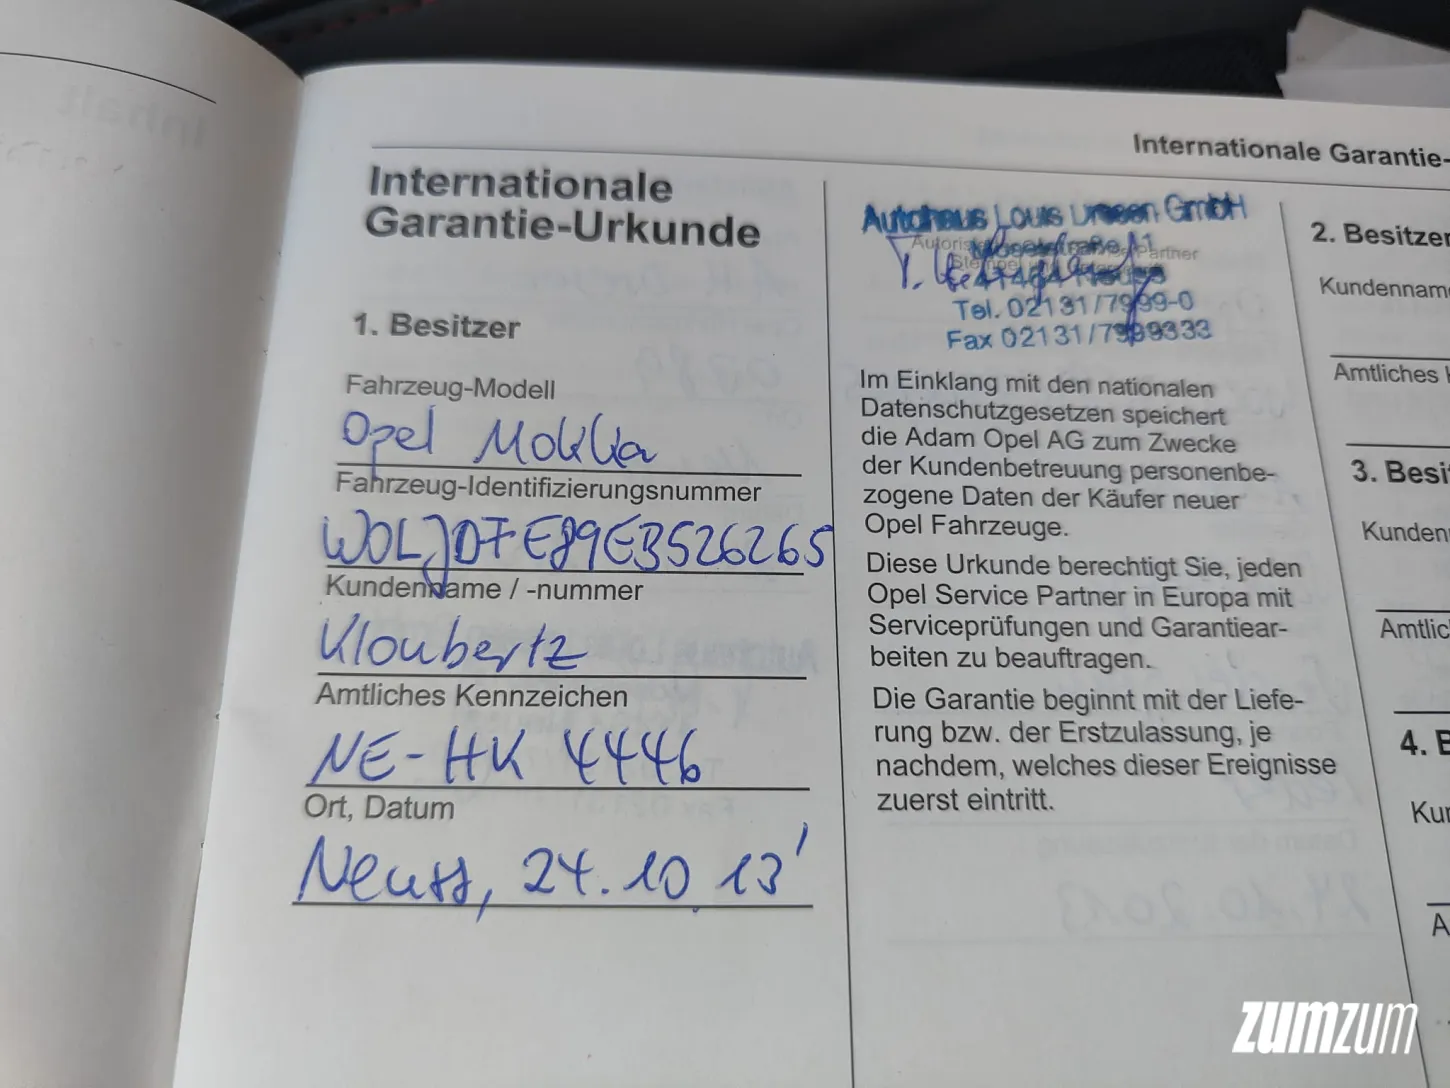 Inhalt
Internationale Garantie-
Internationale
Garantie-Urkunde
1. Besitzer
Fahrzeug-Modell
Opel Mokka
Fahrzeug-Identifizierungsnummer
W0LJD7E89EB526265
Kundenname / -nummer
Kloubertz
Amtliches Kennzeichen
NE-HK 4446
Ort, Datum
Neuss, 24.10.13'
Autohaus Louis GmbH
Partner
Tel. 02131/7999-0
Fax 02131/7999333
Im Einklang mit den nationalen
Datenschutzgesetzen speichert
die Adam Opel AG zum Zwecke
der Kundenbetreuung personenbe-
zogene Daten der Käufer neuer
Opel Fahrzeuge.
Diese Urkunde berechtigt Sie, jeden
Opel Service Partner in Europa mit
Serviceprüfungen und Garantiear-
beiten zu beauftragen.
Die Garantie beginnt mit der Liefe-
rung bzw. der Erstzulassung, je
nachdem, welches dieser Ereignisse
zuerst eintritt.
24.10.2013
2. Besitzer
Kundennam
Amtliches
3. Besi
Kunden
Amtlic
4. B
Kun
A
zumzum